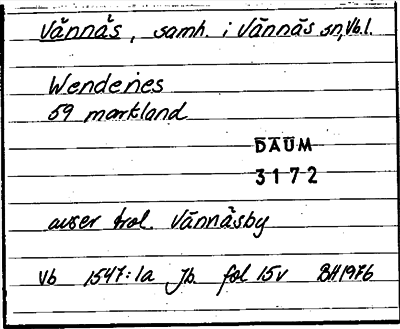 Vännäs, samh. i Vännäs sn, Vb.l.
Wendenes
59 markland
DAUM
3172
avser trol. Vännäsby
Vb 1547:1a Jb. fol 15v BH1976